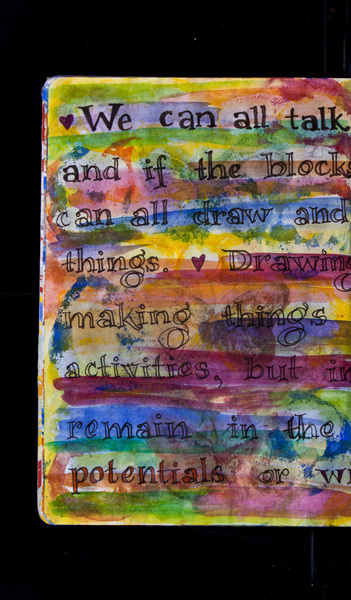 ♥We can all talk
and if the blocks
can all draw and
things. ♥ Drawing
making things
activities, but in
remain in the
potentials or wi